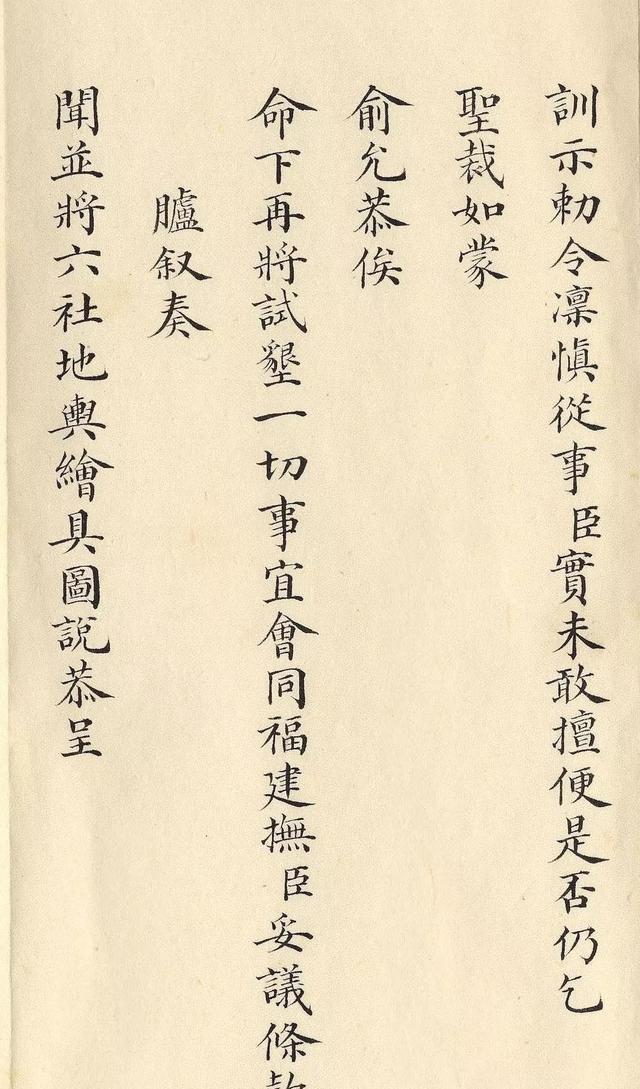 訓示勅令凜慎從事臣實未敢擅便是否仍乞
聖裁如蒙
俞允恭俟
命下再將試墾一切事宜會同福建撫臣妥議條款
臚叙奏
聞並將六社地輿繪具圖說恭呈